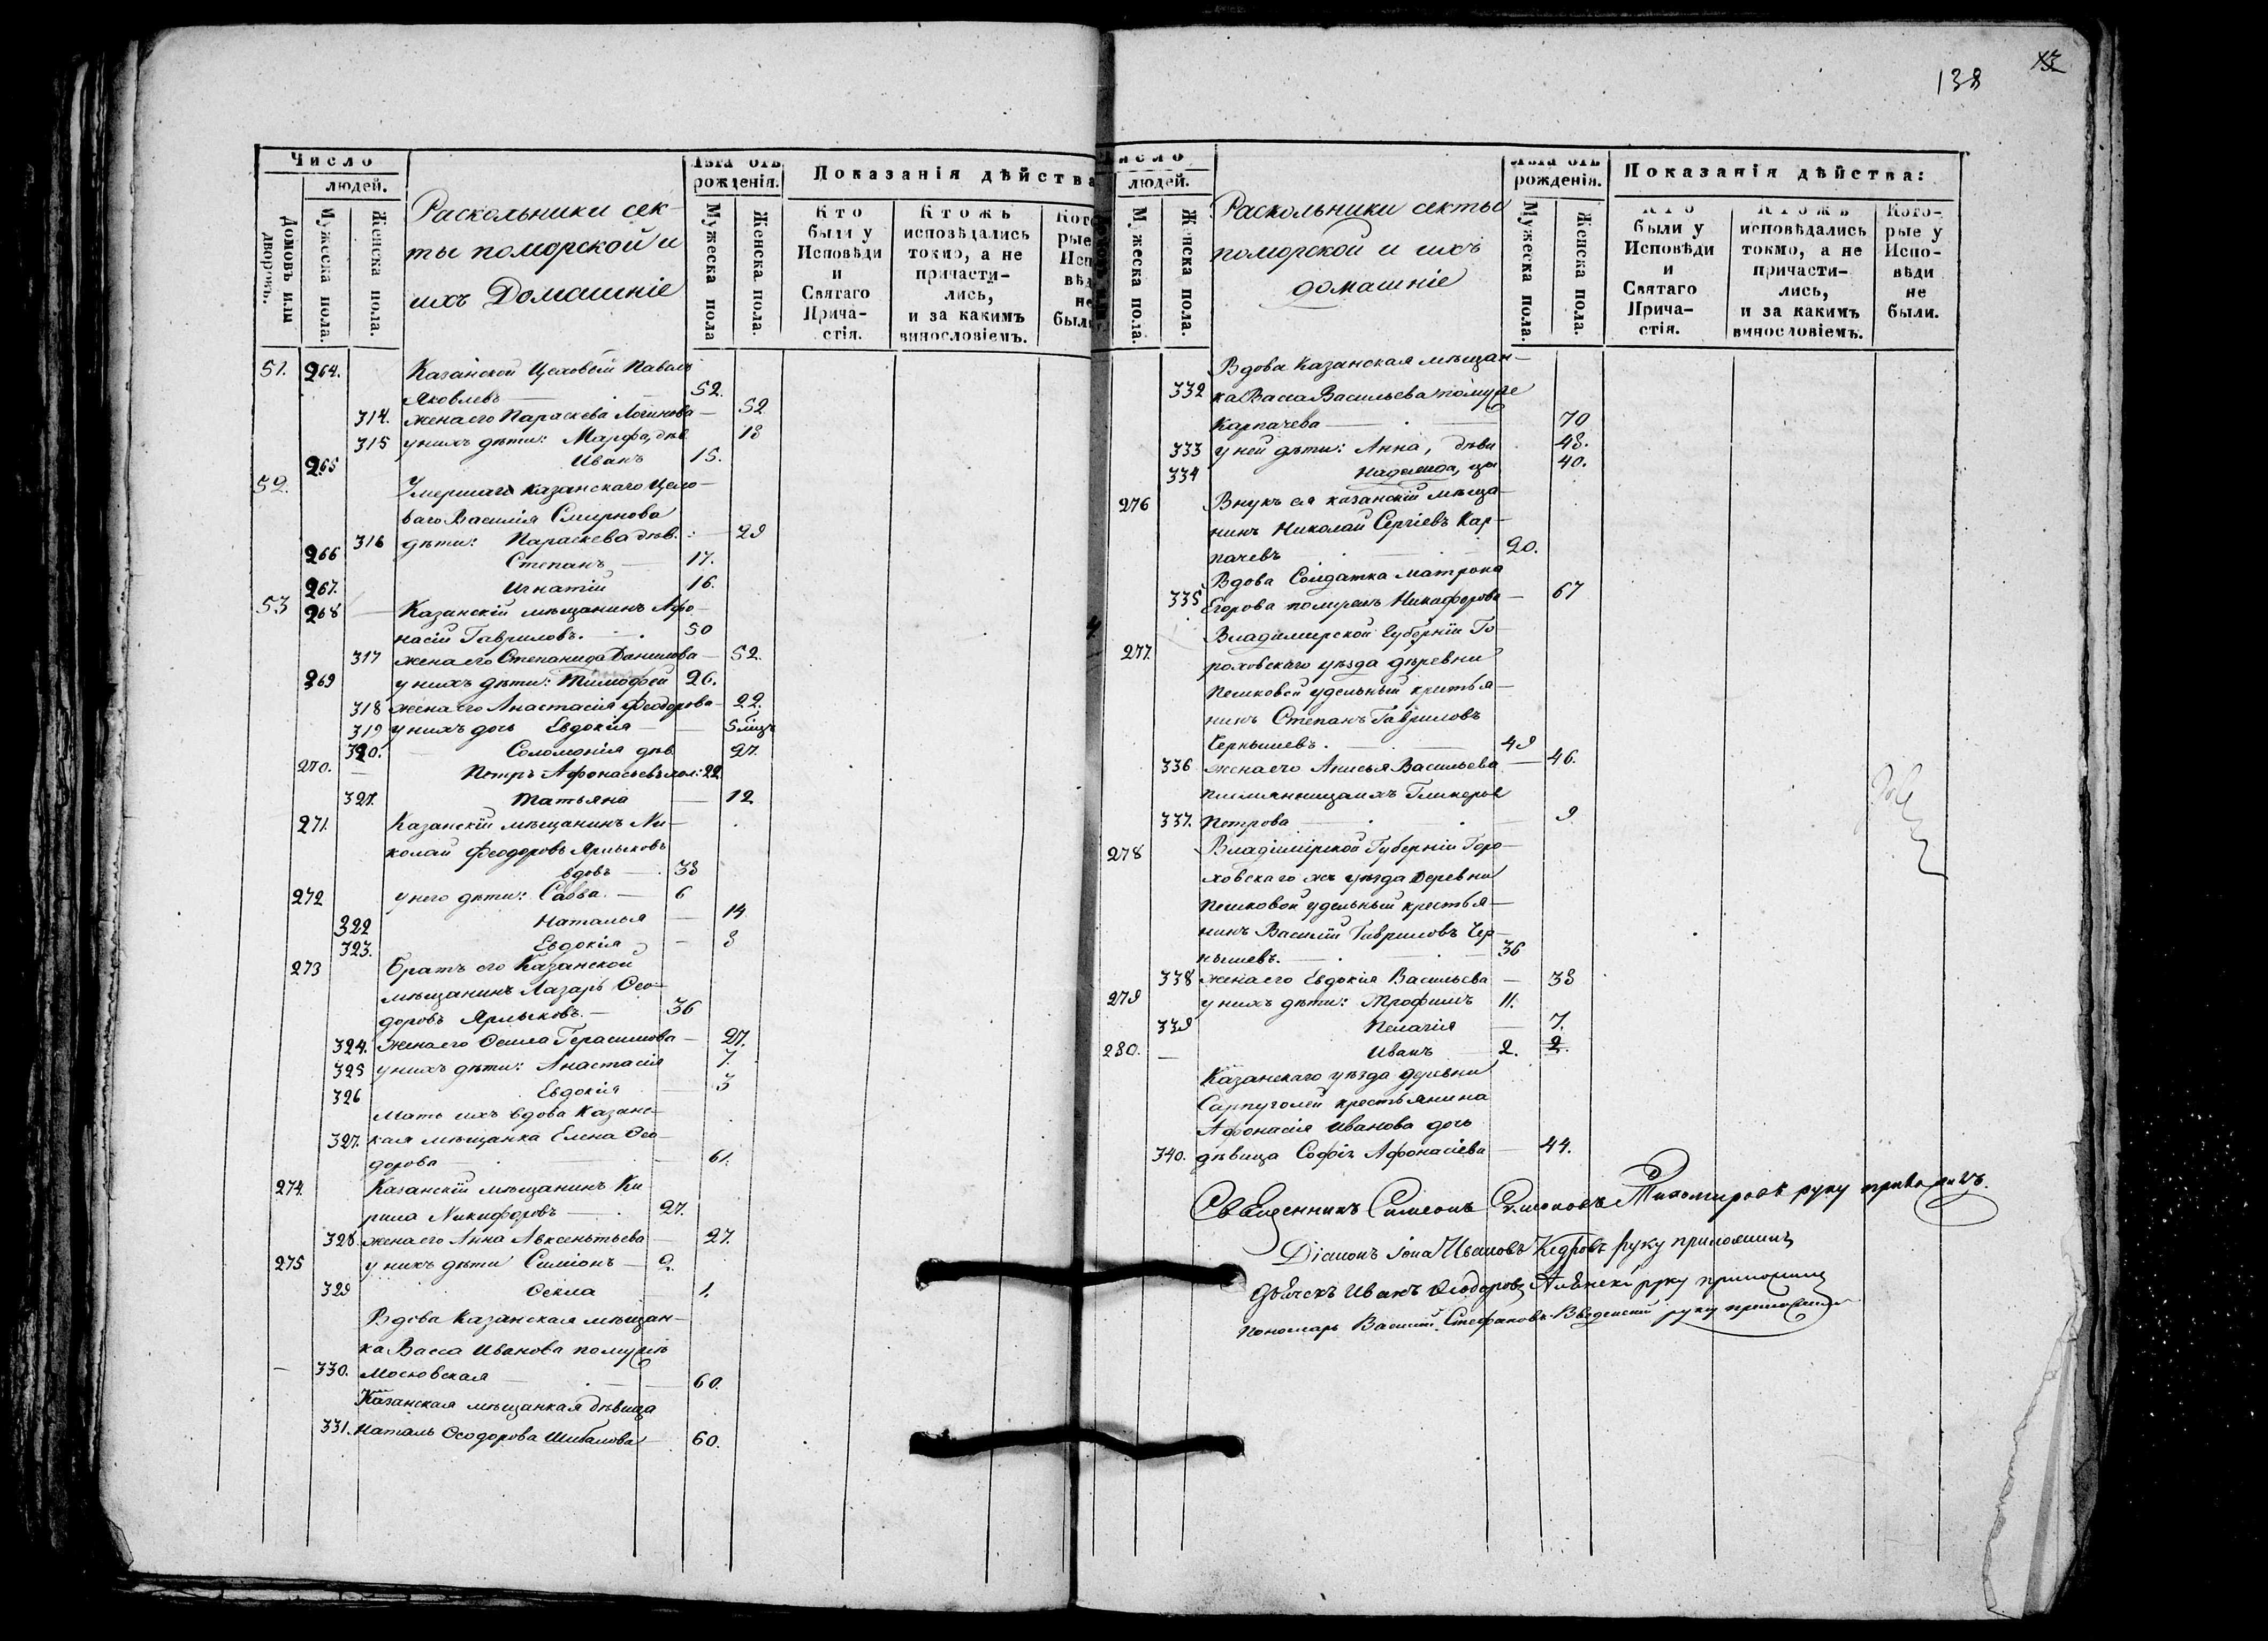 138
Число
людей.
Домовъ или дворовъ.
Мужеска пола.
Женска пола.
Раскольники сек-
ты поморской и
ихъ Домашніе
Лѣта отъ
рожденія.
Мужеска пола
Женска пола.
Показанія дѣйства
Кто
были у
Исповѣди
и
Святаго
Прича-
стія.
Ктожъ
исповѣдались
токмо, а не
причасти-
лись,
и за какимъ
винословіемъ.
51. 264. Казанской Цеховый Павелъ
Яковлевъ — 52.
314. жена его Параскева Логинова — 52
315 у нихъ дѣти: Марфа, дѣв. 18
265 Иванъ 15.
52. Умершаго казанскаго Цехо-
ваго Василія Смирнова
316 дѣти: Параскева дѣв. : — 29
266 Степанъ — 17.
267. Игнатій 16.
53 268 — Казанскій мѣщанинъ Афо-
насій Гавриловъ. 50
317 жена его Степанида Данилова — 52.
269 у нихъ дѣти: Тимофей 26.
318 жена его Анастасія Феодорова — 22.
319 у нихъ дочь Евдокія — 5 мцъ
320. — Соломонія дѣв. 27.
270. — Петръ Афонасьевъ хол: 22
321. Татьяна — 12
271. Казанскій мѣщанинъ Ни-
колай Феодоровъ Ярлыковъ
вдовъ — 38
272 у него дѣти: Савва. — 6
322 Наталья — 14
323. Евдокія — 8
273 Братъ его Казанской
мѣщанинъ Лазарь Ѳео-
доровъ Ярлыковъ. — 36
324. жена его Ѳекла Герасимова — 27.
325 у нихъ дѣти: Анастасія 7.
326 Евдокія 3
Мать ихъ вдова Казанс-
327. кая мѣщанка Елена Ѳео-
дорова — 61.
274. Казанскій мѣщанинъ Ки-
рила Никифоровъ — 27.
328. жена его Анна Авксентьева — 27.
275 у нихъ дѣти Симіонъ — 2.
329 Ѳекла 1.
Вдова Казанская мѣщан-
ка Васса Иванова по мужѣ
— 330. Московская — 60.
Казанская мѣщанкая дѣвица
331. Наталь Ѳеодорова Шибалова — 60.
людей.
Мужеска пола.
Женска пола.
Раскольники секты
поморской и ихъ
домашніе
Лѣта отъ
рожденія.
Мужеска пола.
Женска пола.
Показанія дѣйства:
Кто
были у
Исповѣди
и
Святаго
Прича-
стія.
Ктожъ
исповѣдались
токмо, а не
причасти-
лись,
и за какимъ
винословіемъ.
Кото-
рые у
Испо-
вѣди
не
были.
Вдова Казанская мѣщан-
332 ка Васса Васильева по мужѣ
Карпачева — 70
333 у ней дѣти: Анна, дѣви 48.
334 Надежда, 40.
276 Внукъ ея казанскій мѣща-
нинъ Николай Сергіевъ Кар-
пачевъ 20.
Вдова Солдатка Матрона
335 Егорова по мужѣ Никифорова — 67
277. Владимирской Губерніи Го-
роховскаго уѣзда деревни
Пешковой удельный крестья-
нинъ Степанъ Гавриловъ
Чернышевъ. — 49
336 жена его Анисья Васильева — 46.
племянница ихъ Гликерья
337. Петрова — 9
278 Владимірской Губерніи Горо-
ховскаго жъ уѣзда деревни
Пешковой удельный крестья-
нинъ Василій Гавриловъ Чер-
нышевъ. — 36
338 жена его Евдокія Васильева — 38
279 у нихъ дѣти: Трофимъ 11.
339 Пелагія — 7.
280. — Иванъ — 2. 2.
Казанскаго уѣзда деревни
крестьянина
Афонасія Иванова дочь
340. дѣвица Софія Афонасіева — 44.
Священникъ Симеонъ Тихомировъ руку приложилъ.
Діаконъ Іона Ивановъ Кедровъ руку приложилъ
Дьячекъ Иванъ Ѳеодоровъ руку приложилъ
Пономарь Василий Стефановъ Введенский руку приложилъ